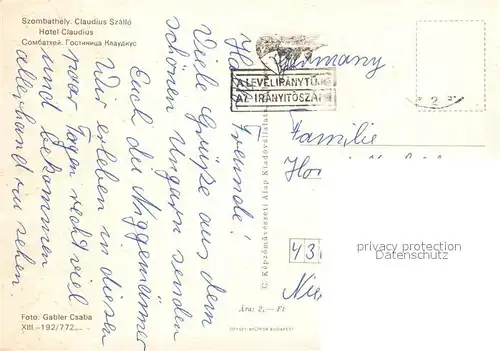 Szombathely. Claudius Szálló
Hotel Claudius
Сомбатхей. Гостиница Клаудиус
Hallo Freunde!
Viele Grüße aus dem
schönen Ungarn senden
Euch die Niggemänner
Wir erleben in diesen
paar Tagen recht viel
und bekommen
allerhand zu sehen.
Foto: Gabler Csaba
XIII.-192/772
C. Képzőművészeti Alap Kiadóvállalata
Ára: 2,— Ft
OFFSET-NYOMDA BUDAPEST
A LEVÉLIRÁNYTŰJE
AZ IRÁNYÍTÓSZÁM
Germany
Familie
43
privacy protection
copyright